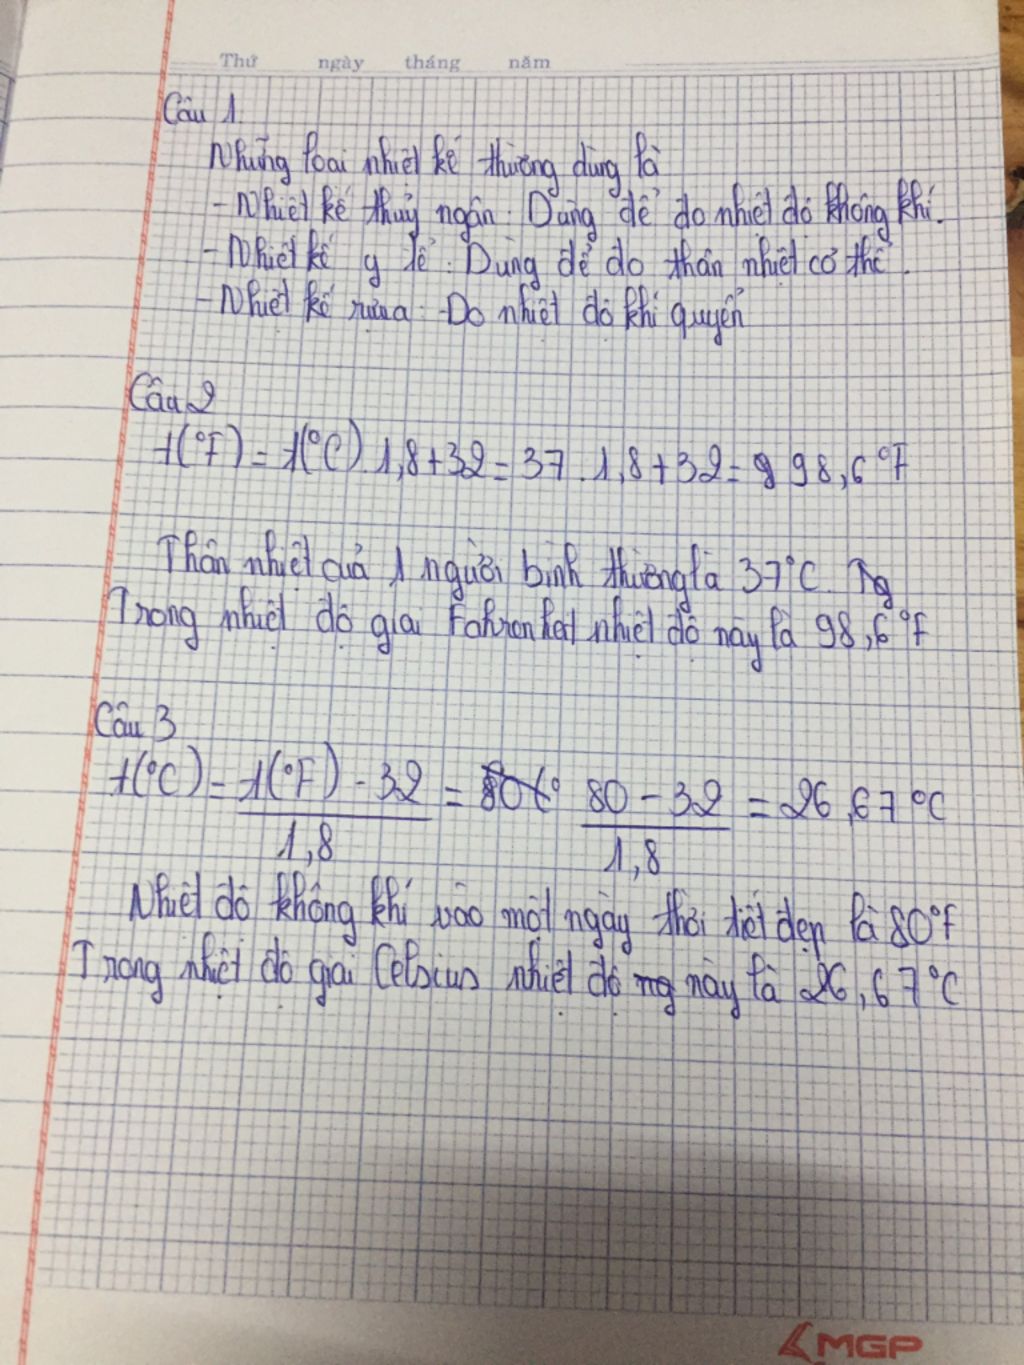 Thứ ngày tháng năm
Câu 1.
Những loại nhiệt kế thường dùng là
- Nhiệt kế thủy ngân: Dùng để đo nhiệt độ không khí.
- Nhiệt kế y tế: Dùng để đo thân nhiệt cơ thể.
- Nhiệt kế rượu: Đo nhiệt độ khí quyển
Câu 2
t(°F) = t(°C). 1,8 + 32 = 37 . 1,8 + 32 = 98,6 °F
Thân nhiệt của 1 người bình thường là 37°C. Tg
Trong nhiệt độ giai Fahrenheit nhiệt độ này là 98,6 °F
Câu 3
t(°C) = t(°F) - 32 / 1,8 = 80 - 32 / 1,8 = 26,67 °C
Nhiệt độ không khí vào một ngày thời tiết đẹp là 80°F
Trong nhiệt độ giai Celsius nhiệt độ ng này là 26,67°C
MGP